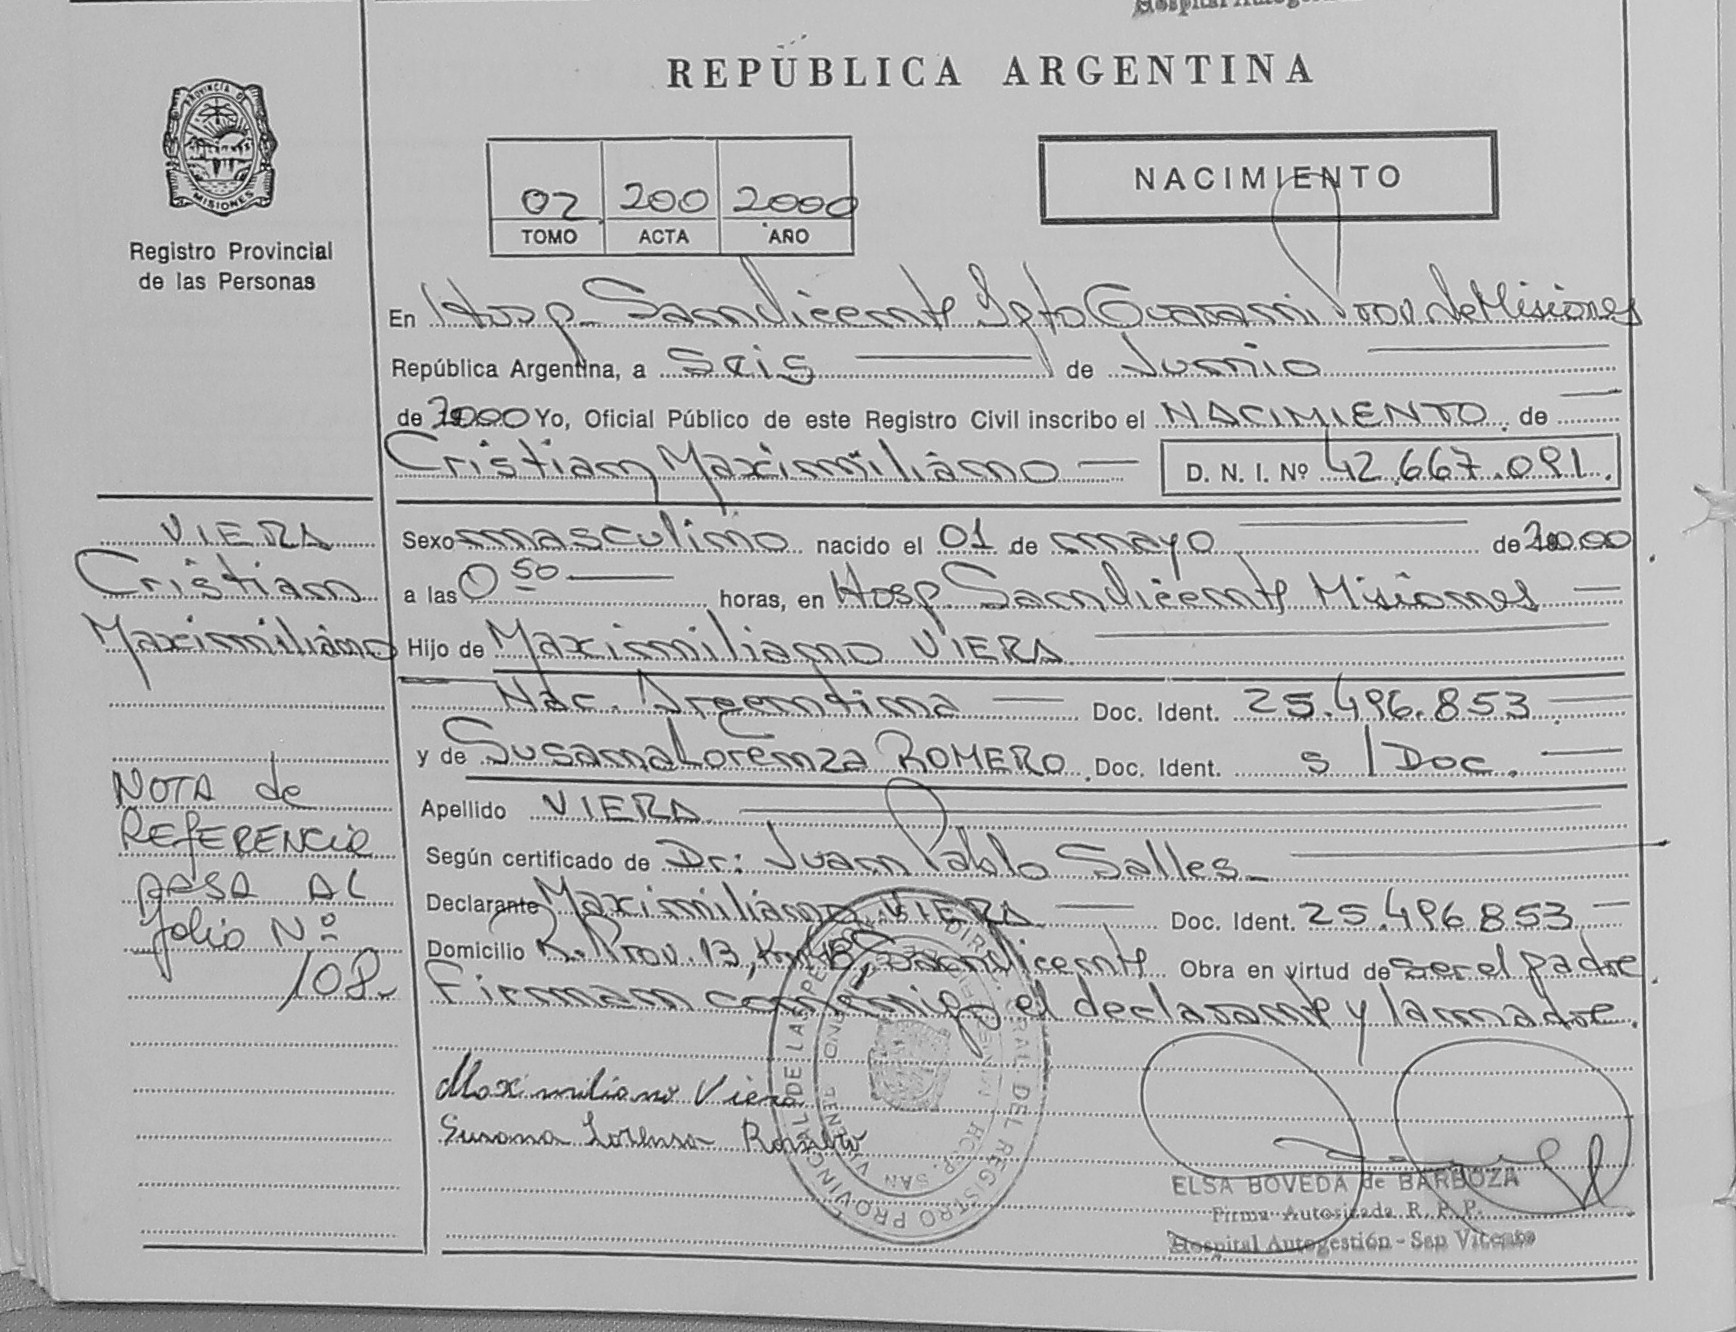 Hospital
REPÚBLICA ARGENTINA
PROVINCIA DE
MISIONES
Registro Provincial
de las Personas
02 200 2000
TOMO ACTA AÑO
NACIMIENTO
En Hosp. San Vicente Dpto Guarani Prov de Misiones
República Argentina, a Seis de Junio
de 2000 Yo, Oficial Público de este Registro Civil inscribo el NACIMIENTO de
Cristian Maximiliano D. N. I. Nº 42.667.091.
Sexo masculino nacido el 01 de mayo de 2000
a las 0 50 horas, en Hosp. San Vicente Misiones
Hijo de Maximiliano VIERA
Nac. Argentina Doc. Ident. 25.496.853
y de Susana Lorenza ROMERO Doc. Ident. s/Doc.
Apellido VIERA
Según certificado de Dr: Juan Pablo Salles
Declarante Maximiliano VIERA Doc. Ident. 25.496.853
Domicilio R. Prov. 13, San Vicente Obra en virtud de ser el padre.
Firman conmigo el declarante y la madre.
Maximiliano Viera
Susana Lorensa Romero
VIERA
Cristian
Maximiliano
NOTA de
REFERENCIA
PASA AL
folio Nº
108.
ELSA BOVEDA de BARBOZA
Firma Autorizada R. P. P.
Hospital Autogestión - San Vicente
REGISTRO PROVINCIAL DE LAS